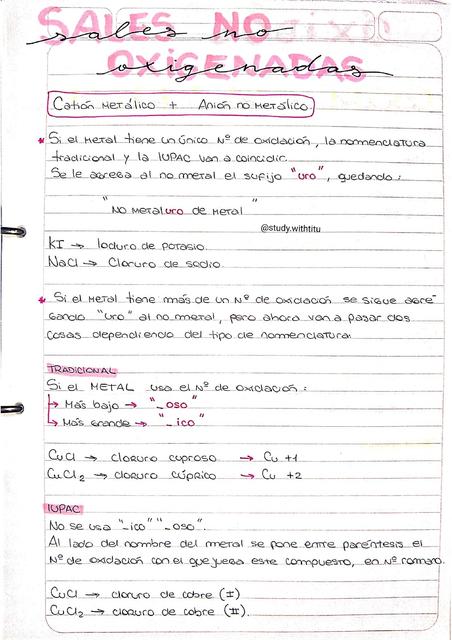 SALES NO
sales no
OXIGENADAS
oxigenadas
Catión metálico + Anión no metálico.
* Si el metal tiene un único Nº de oxidación, la nomenclatura
tradicional y la IUPAC van a coincidir.
Se le agrega al no metal el sufijo "uro", quedando:
"No metaluro de metal"
@study.withtitu
KI → Ioduro de potasio.
NaCl → Cloruro de sodio.
* Si el metal tiene más de un Nº de oxidación se sigue agre-
gando "uro" al no metal, pero ahora van a pasar dos
cosas dependiendo del tipo de nomenclatura:
TRADICIONAL
Si el METAL usa el Nº de oxidación:
→ Más bajo → "_oso"
→ Más grande → "_ico"
CuCl → cloruro cuproso → Cu +1
CuCl2 → cloruro cúprico → Cu +2
IUPAC
No se usa "-ico" "-oso".
Al lado del nombre del metal se pone entre paréntesis el
Nº de oxidación con el que juega este compuesto, en Nº romano.
CuCl → cloruro de cobre (I)
CuCl2 → cloruro de cobre (II).